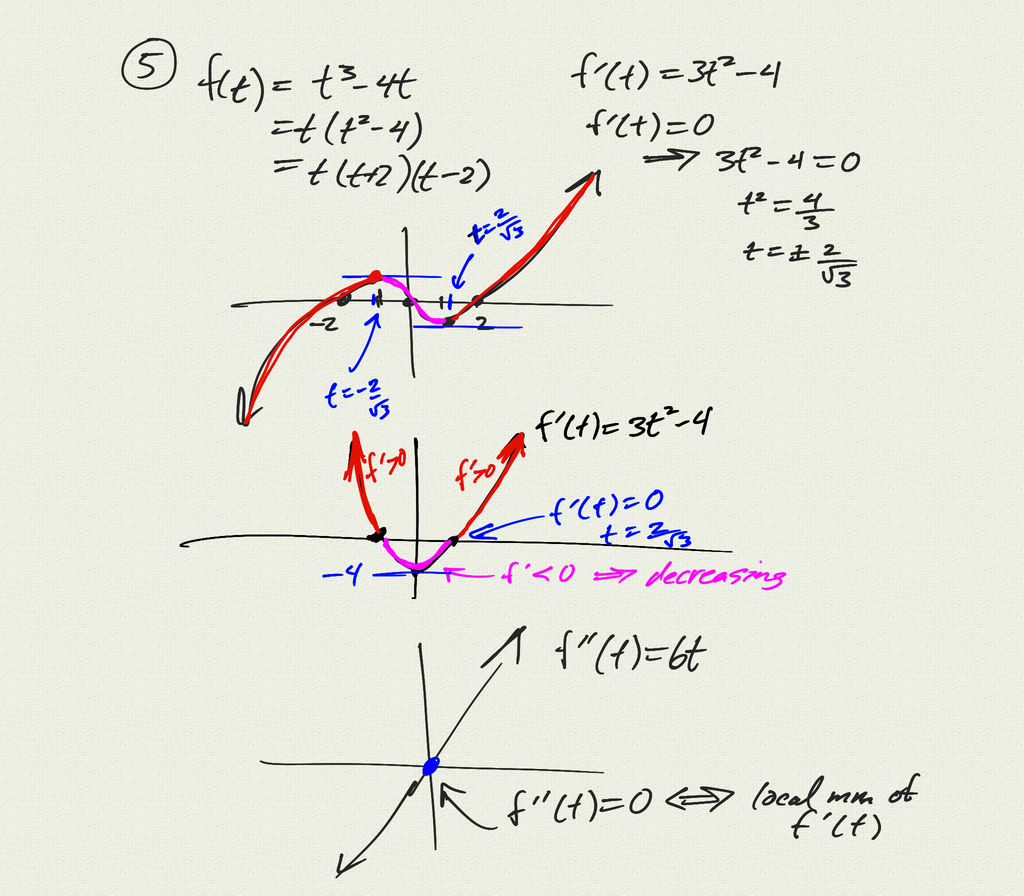 ⑤ f(t) = t³ - 4t
= t(t² - 4)
= t(t+2)(t-2)
f'(t) = 3t² - 4
f'(t) = 0
⇒ 3t² - 4 = 0
t² = 4/3
t = ± 2/√3
t = 2/√3
-2 -1 1 2
t = -2/√3
f'(t) = 3t² - 4
f'>0 f'>0
f'(t) = 0
t = 2/√3
-4 f' < 0 ⇒ decreasing
f''(t) = 6t
f''(t) = 0 ⇔ local min of
f'(t)